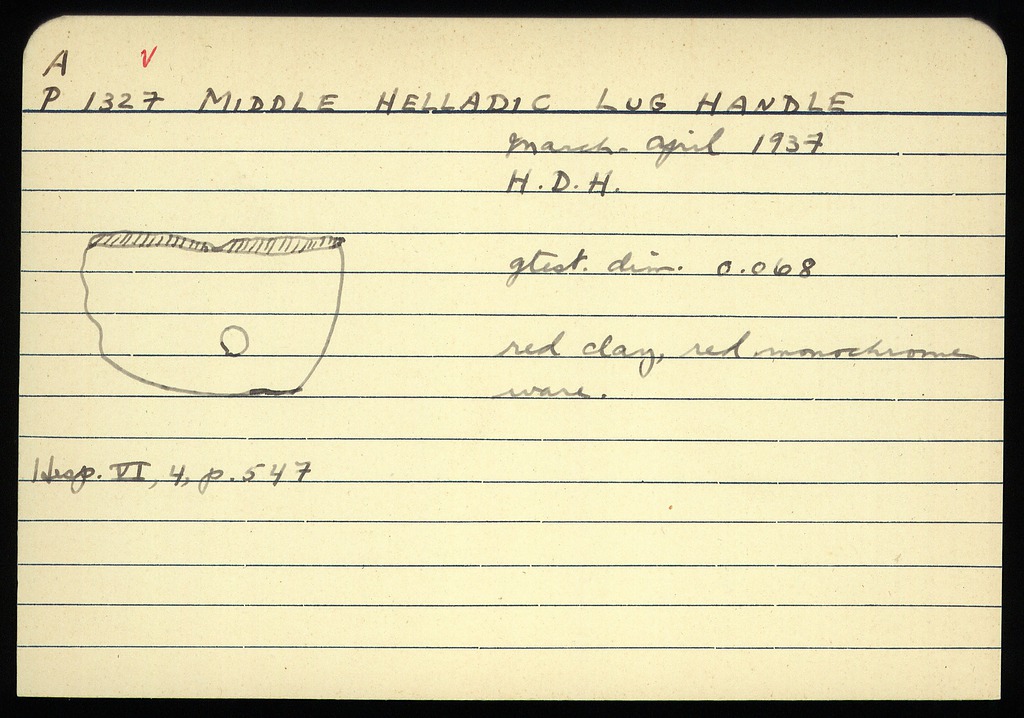 A V
P 1327 MIDDLE HELLADIC LUG HANDLE
March-April 1937
H.D.H.
gtest. dim. 0.068
red clay, red monochrome
ware.
Hesp. VI, 4, p. 547